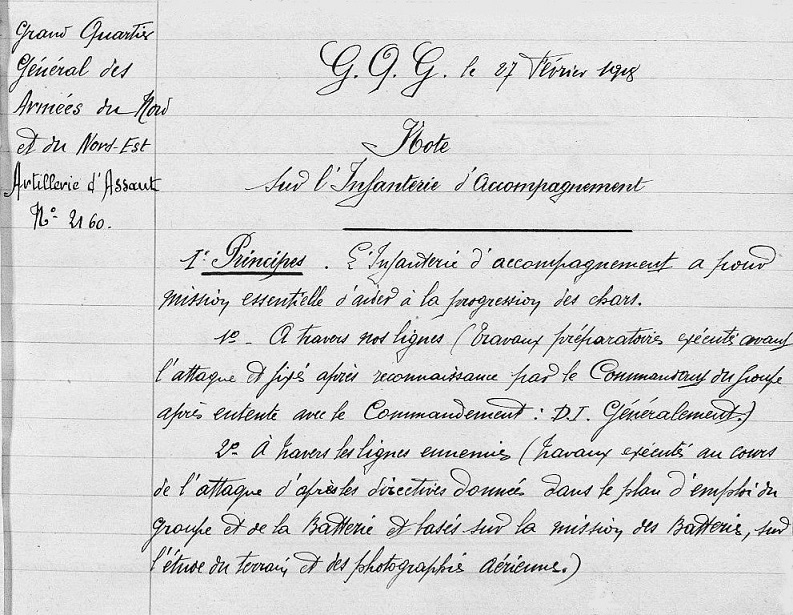 Grand Quartier
Général des
Armées du Nord
et du Nord-Est
Artillerie d'Assaut
N° 2160.
G.Q.G. le 27 Février 1918
Note
sur l'Infanterie d'Accompagnement
I° Principes. L'Infanterie d'accompagnement a pour
mission essentielle d'aider à la progression des chars.
1° - A travers nos lignes (Travaux préparatoires exécutés avant
l'attaque et fixés après reconnaissance par le Commandant du Groupe
après entente avec le Commandement : D.I. Généralement.)
2° À travers les lignes ennemies (travaux exécutés au cours
de l'attaque d'après les directives données dans le plan d'emploi du
groupe et de la Batterie et basés sur la mission des Batteries, sur
l'étude du terrain et des photographies aériennes.)